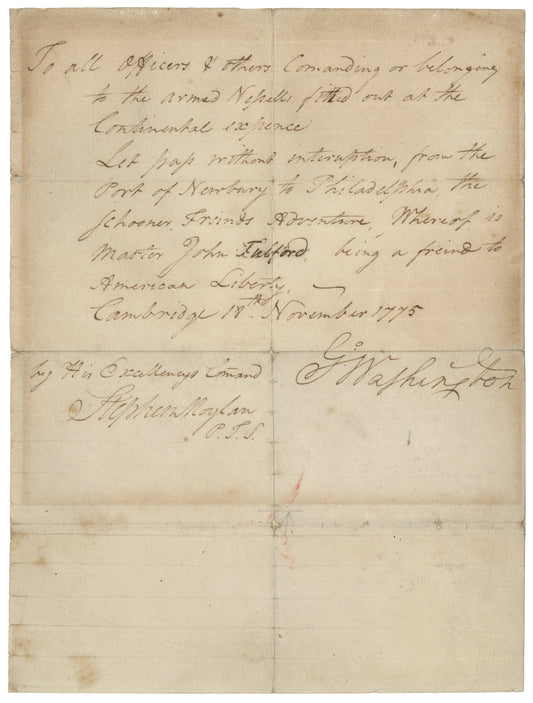 To all Officers & others Comanding or belonging
to the armed Vessells fitted out at the
Continental expence
Let pass without interuption, from the
Port of Newbury to Philadelphia, the
schooner, Freinds Adventure, Whereof is
Master John Fulford, being a freind to
American Liberty.
Cambridge 18th November 1775
Go Washington
by His Excellencys Comand
Stephen Moylan
P.T.S.